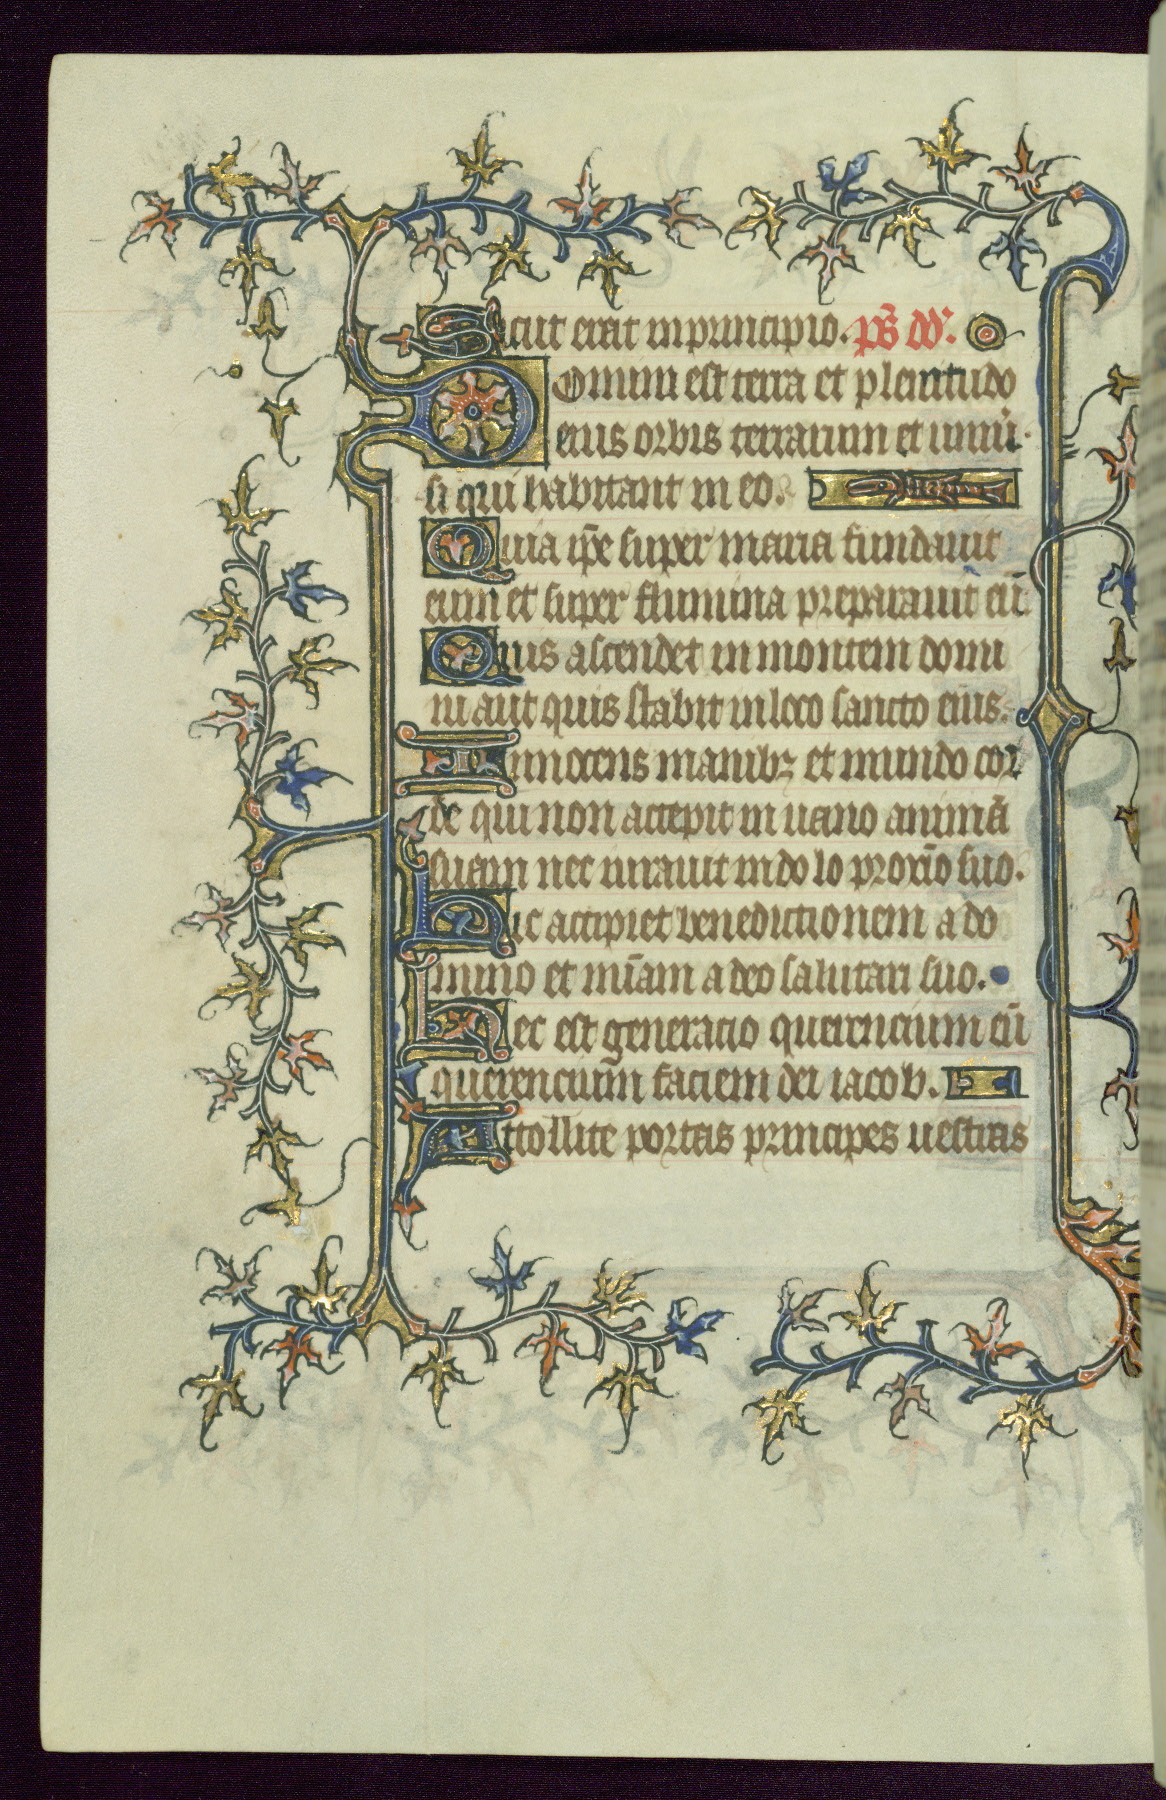 Sicut erat in principio. ps̄ dd'.
Domini est terra et plenitudo
eius orbis terrarum et uniu͛
si qui habitant in eo.
Quia ip̄e super maria fundauit
eum et super flumina preparauit eū.
Quis ascendet in montem domi
ni aut quis stabit in loco sancto eius.
Innocens manibꝫ et mundo cor
de qui non accepit in uano animā
suam nec iurauit in dolo proxīo suo.
Hic accipiet benedictionem a do
mino et mīam a deo salutari suo.
Hec est generatio querencium eū
querencium faciem dei iacob.
Attollite portas principes uestras